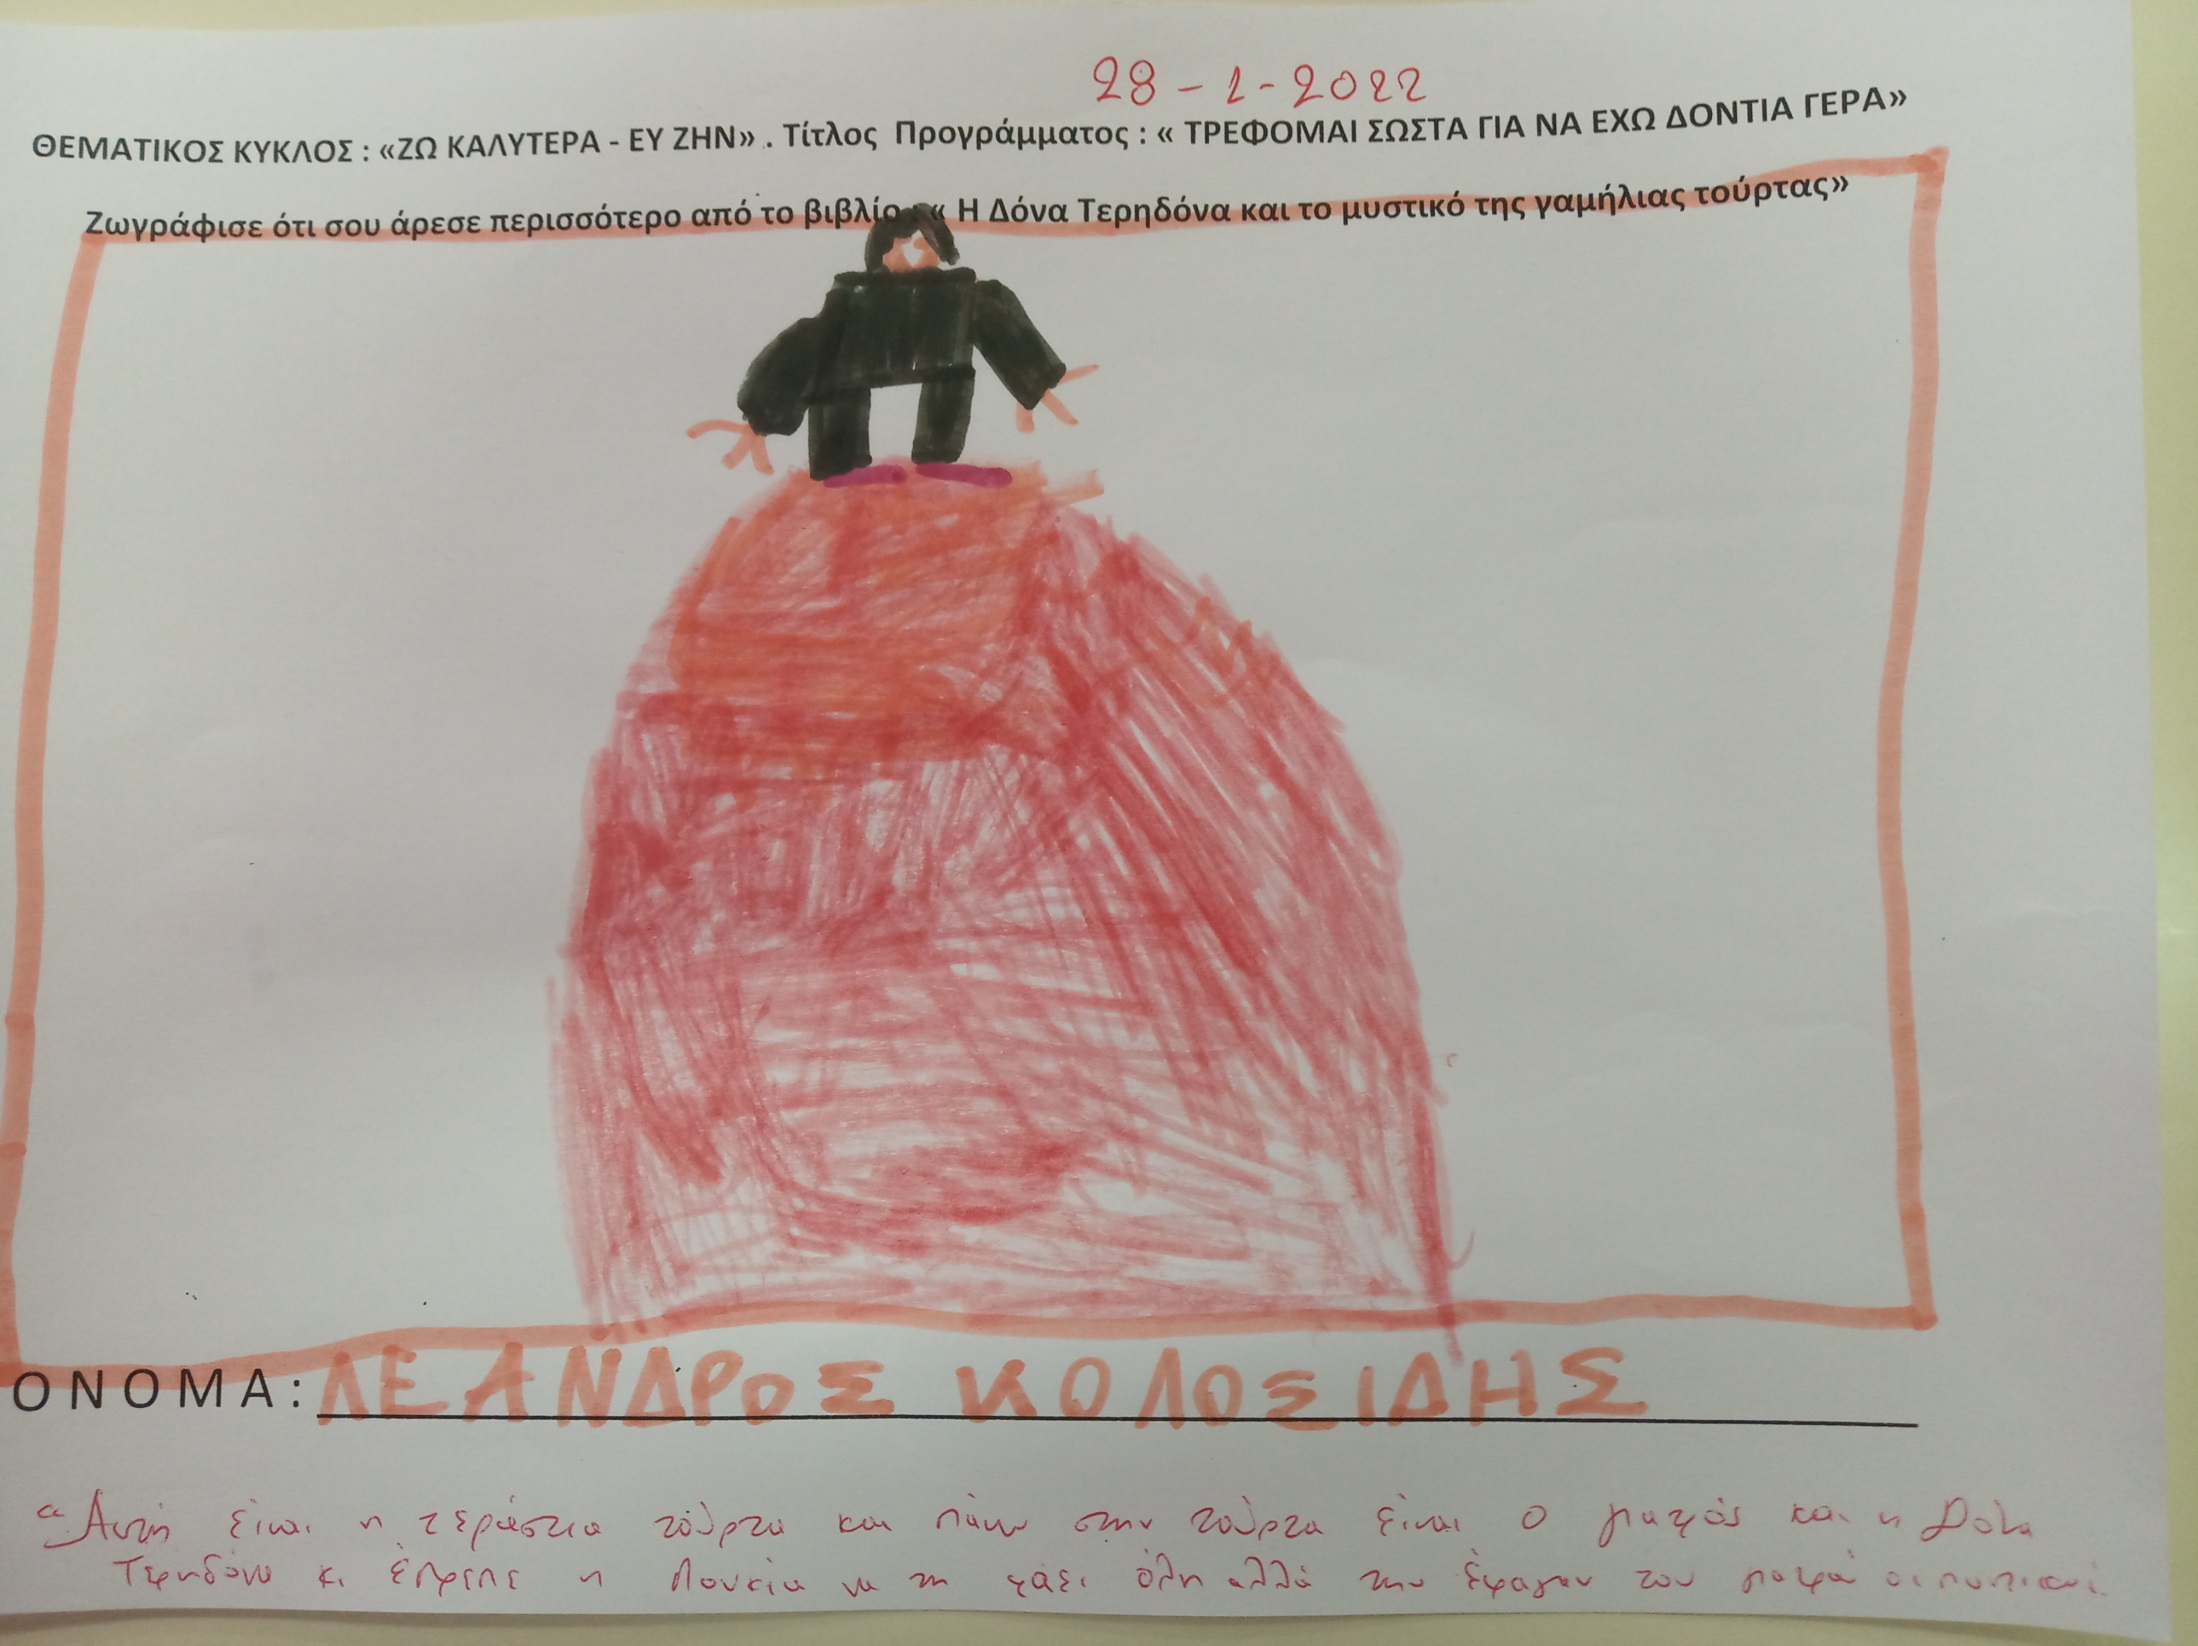 28-1-2022
ΘΕΜΑΤΙΚΟΣ ΚΥΚΛΟΣ : «ΖΩ ΚΑΛΥΤΕΡΑ - ΕΥ ΖΗΝ» . Τίτλος Προγράμματος : « ΤΡΕΦΟΜΑΙ ΣΩΣΤΑ ΓΙΑ ΝΑ ΕΧΩ ΔΟΝΤΙΑ ΓΕΡΑ»
Ζωγράφισε ότι σου άρεσε περισσότερο από το βιβλίο « Η Δόνα Τερηδόνα και το μυστικό της γαμήλιας τούρτας»
ΟΝΟΜΑ: ΛΕΑΝΔΡΟΣ ΚΟΛΟΣΙΔΗΣ
"Αυτή είναι η τεράστια τούρτα και πάνω στην τούρτα είναι ο γιατρός και η Δόνα
Τερηδόνα κι έπρεπε η Λουκία να τη φάει όλη αλλά την έφαγαν του